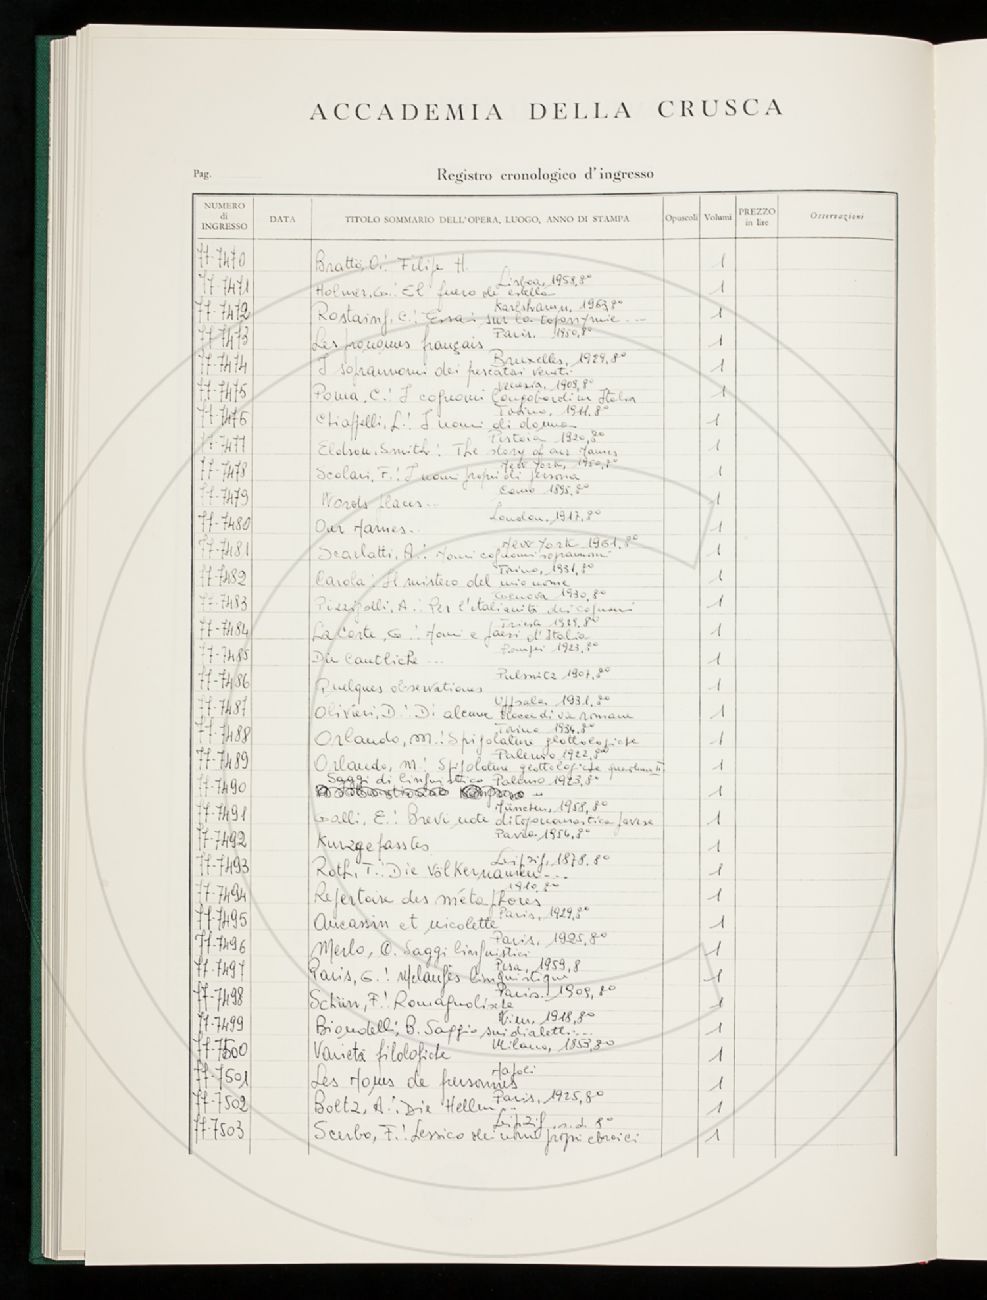 ACCADEMIA DELLA CRUSCA
Pag.
Registro cronologico d'ingresso
NUMERO di INGRESSO DATA TITOLO SOMMARIO DELL'OPERA, LUOGO, ANNO DI STAMPA Opuscoli Volumi PREZZO in lire Osservazioni
77-7470 Brattö, O.: Filipe H. 1
Lisboa, 1958, 8°
77-7471 Holmer, G.: El fuero de estella 1
Karlshamn, 1963, 8°
77-7472 Rostaing, C.: Essai sur la toponymie ... 1
Paris, 1950, 8°
77-7473 Les prénoms français 1
Bruxelles, 1929, 8°
77-7474 I soprannomi dei pescatori veneti 1
Venezia, 1909, 8°
77-7475 Poma, C.: I cognomi Longobardi in Italia 1
Torino, 1911, 8°
77-7476 Chiappelli, L.: I nomi di donna 1
Pistoia 1920, 8°
77-7477 Eldson, Smith: The story of our Names 1
New York, 1950, 8°
77-7478 Scolari, F.: I nomi propri di persona 1
Como 1895, 8°
77-7479 Words 1
London, 1917, 8°
77-7480 Our Names.. 1
New York 1961, 8°
77-7481 Scarlatti, A.: Nomi cognomi soprannomi 1
Torino, 1931, 8°
77-7482 Carola: Il mistero del mio nome 1
Genova 1930, 8°
77-7483 Pizzigalli, A.: Per l'italianità dei cognomi 1
Trieste 1929, 8°
77-7484 La Corte, G.: Nomi e paesi d'Italia 1
Pompei 1923, 8°
77-7485 Die 1
Pulsnitz 1907, 8°
77-7486 Quelques observations 1
Uppsala 1931, 8°
77-7487 Olivieri, D.: Di alcune tracce di via romane 1
Torino 1934, 8°
77-7488 Orlando, M.: Spigolature glottologiche 1
Palermo 1922, 8°
77-7489 Orlando, M.: Spigolature glottologiche 1
Saggi di linguistica Palermo 1923, 8°
77-7490 1
München, 1958, 8°
77-7491 Galli, E.: Breve note di toponomastica pavese 1
Pavia 1956, 8°
77-7492 Kurzgefasstes 1
Leipzig, 1878, 8°
77-7493 Roth, T.: Die Völkernamen... 1
1910, 8°
77-7494 Repertoire des métaphores 1
Paris, 1929, 8°
77-7495 Aucassin et nicolette 1
Paris, 1925, 8°
77-7496 Merlo, C. Saggi linguistici 1
Pisa, 1959, 8
77-7497 Paris, G.: Melanges linguistiqu 1
Paris, 1909, 8°
77-7498 Schürr, F.: Romagnolische 1
Wien, 1918, 8°
77-7499 Biondelli, B. Saggio sui dialetti... 1
Milano, 1853, 8°
77-7500 Varietà filologiche 1
Napoli
77-7501 Les Noms de personnes 1
Paris, 1925, 8°
77-7502 Boltz, A.: Die Hellen... 1
Leipzig, s.d. 8°
77-7503 Scerbo, F.: Lessico dei nomi propri ebraici 1